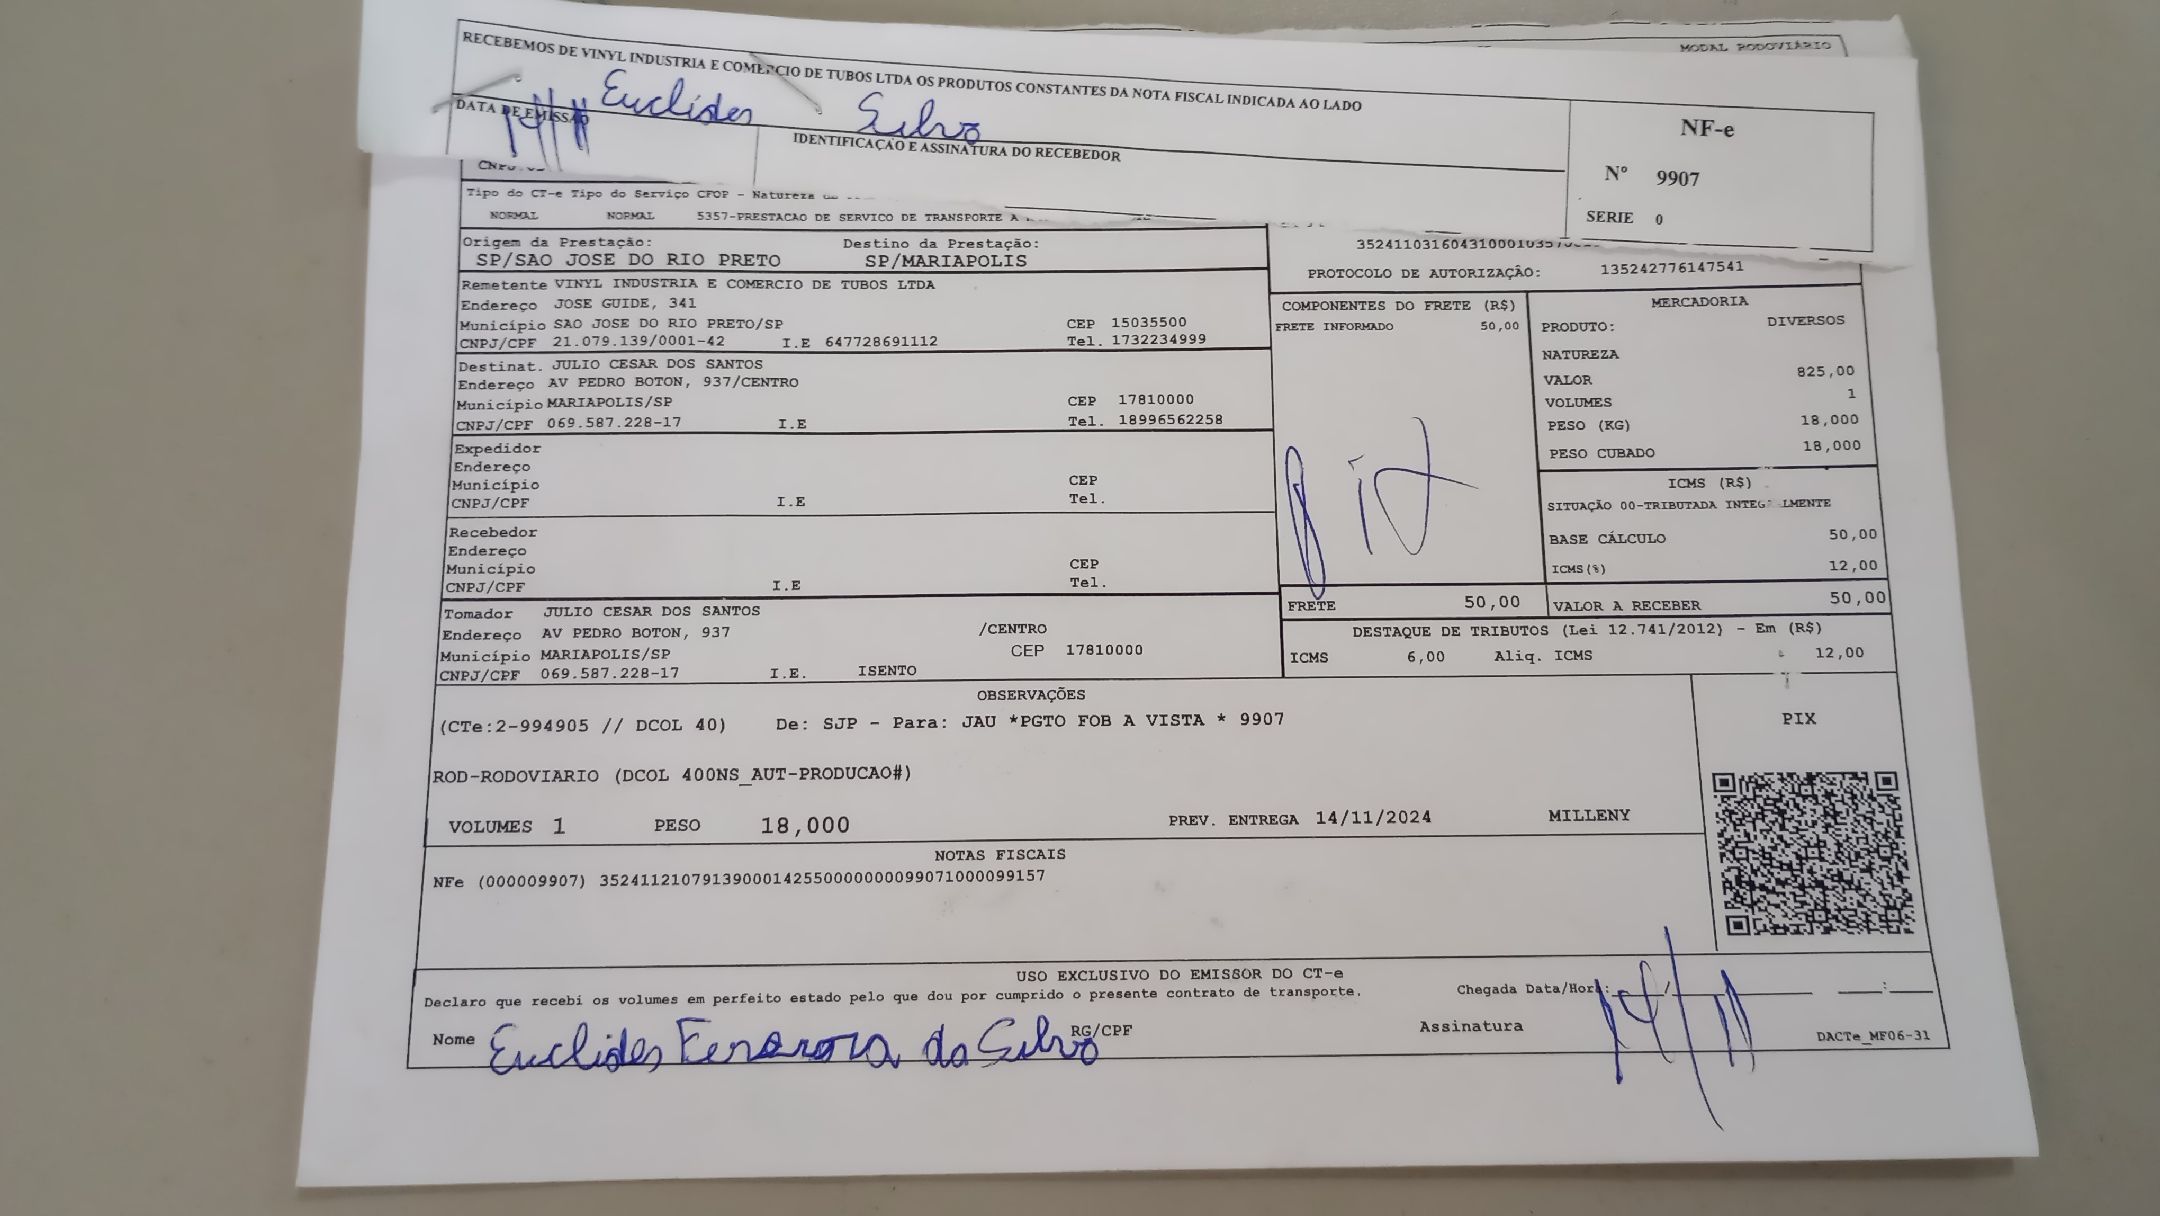 MODAL RODOVIÁRIO
RECEBEMOS DE VINYL INDUSTRIA E COMERCIO DE TUBOS LTDA OS PRODUTOS CONSTANTES DA NOTA FISCAL INDICADA AO LADO
Euclides Silva
DATA DE EMISSÃO
14/11
IDENTIFICAÇÃO E ASSINATURA DO RECEBEDOR
NF-e
Nº 9907
SERIE 0
Tipo do CT-e Tipo do Serviço CFOP - Natureza
NORMAL NORMAL 5357-PRESTACAO DE SERVICO DE TRANSPORTE A
Origem da Prestação: Destino da Prestação:
SP/SAO JOSE DO RIO PRETO SP/MARIAPOLIS
PROTOCOLO DE AUTORIZAÇÃO: 135242776147541
Remetente VINYL INDUSTRIA E COMERCIO DE TUBOS LTDA
Endereço JOSE GUIDE, 341
Município SAO JOSE DO RIO PRETO/SP CEP 15035500
CNPJ/CPF 21.079.139/0001-42 I.E 647728691112 Tel. 1732234999
Destinat. JULIO CESAR DOS SANTOS
Endereço AV PEDRO BOTON, 937/CENTRO
Município MARIAPOLIS/SP CEP 17810000
CNPJ/CPF 069.587.228-17 I.E Tel. 18996562258
Expedidor
Endereço
Município CEP
CNPJ/CPF I.E Tel.
Recebedor
Endereço
Município CEP
CNPJ/CPF I.E Tel.
Tomador JULIO CESAR DOS SANTOS
Endereço AV PEDRO BOTON, 937 /CENTRO
Município MARIAPOLIS/SP CEP 17810000
CNPJ/CPF 069.587.228-17 I.E. ISENTO
COMPONENTES DO FRETE (R$)
FRETE INFORMADO 50,00
MERCADORIA
PRODUTO: DIVERSOS
NATUREZA
VALOR 825,00
VOLUMES 1
PESO (KG) 18,000
PESO CUBADO 18,000
ICMS (R$)
SITUAÇÃO 00-TRIBUTADA INTEGRALMENTE
BASE CÁLCULO 50,00
ICMS(%) 12,00
FRETE 50,00 VALOR A RECEBER 50,00
DESTAQUE DE TRIBUTOS (Lei 12.741/2012) - Em (R$)
ICMS 6,00 Aliq. ICMS 12,00
OBSERVAÇÕES
(CTe:2-994905 // DCOL 40) De: SJP - Para: JAU *PGTO FOB A VISTA * 9907
ROD-RODOVIARIO (DCOL 400NS_AUT-PRODUCAO#)
VOLUMES 1 PESO 18,000 PREV. ENTREGA 14/11/2024 MILLENY
PIX
NOTAS FISCAIS
NFe (000009907) 35241121079139000142550000000099071000099157
USO EXCLUSIVO DO EMISSOR DO CT-e
Declaro que recebi os volumes em perfeito estado pelo que dou por cumprido o presente contrato de transporte.
Chegada Data/Hora: 14/11
Nome Euclides Ferreira da Silva RG/CPF Assinatura
DACTe_MF06-31